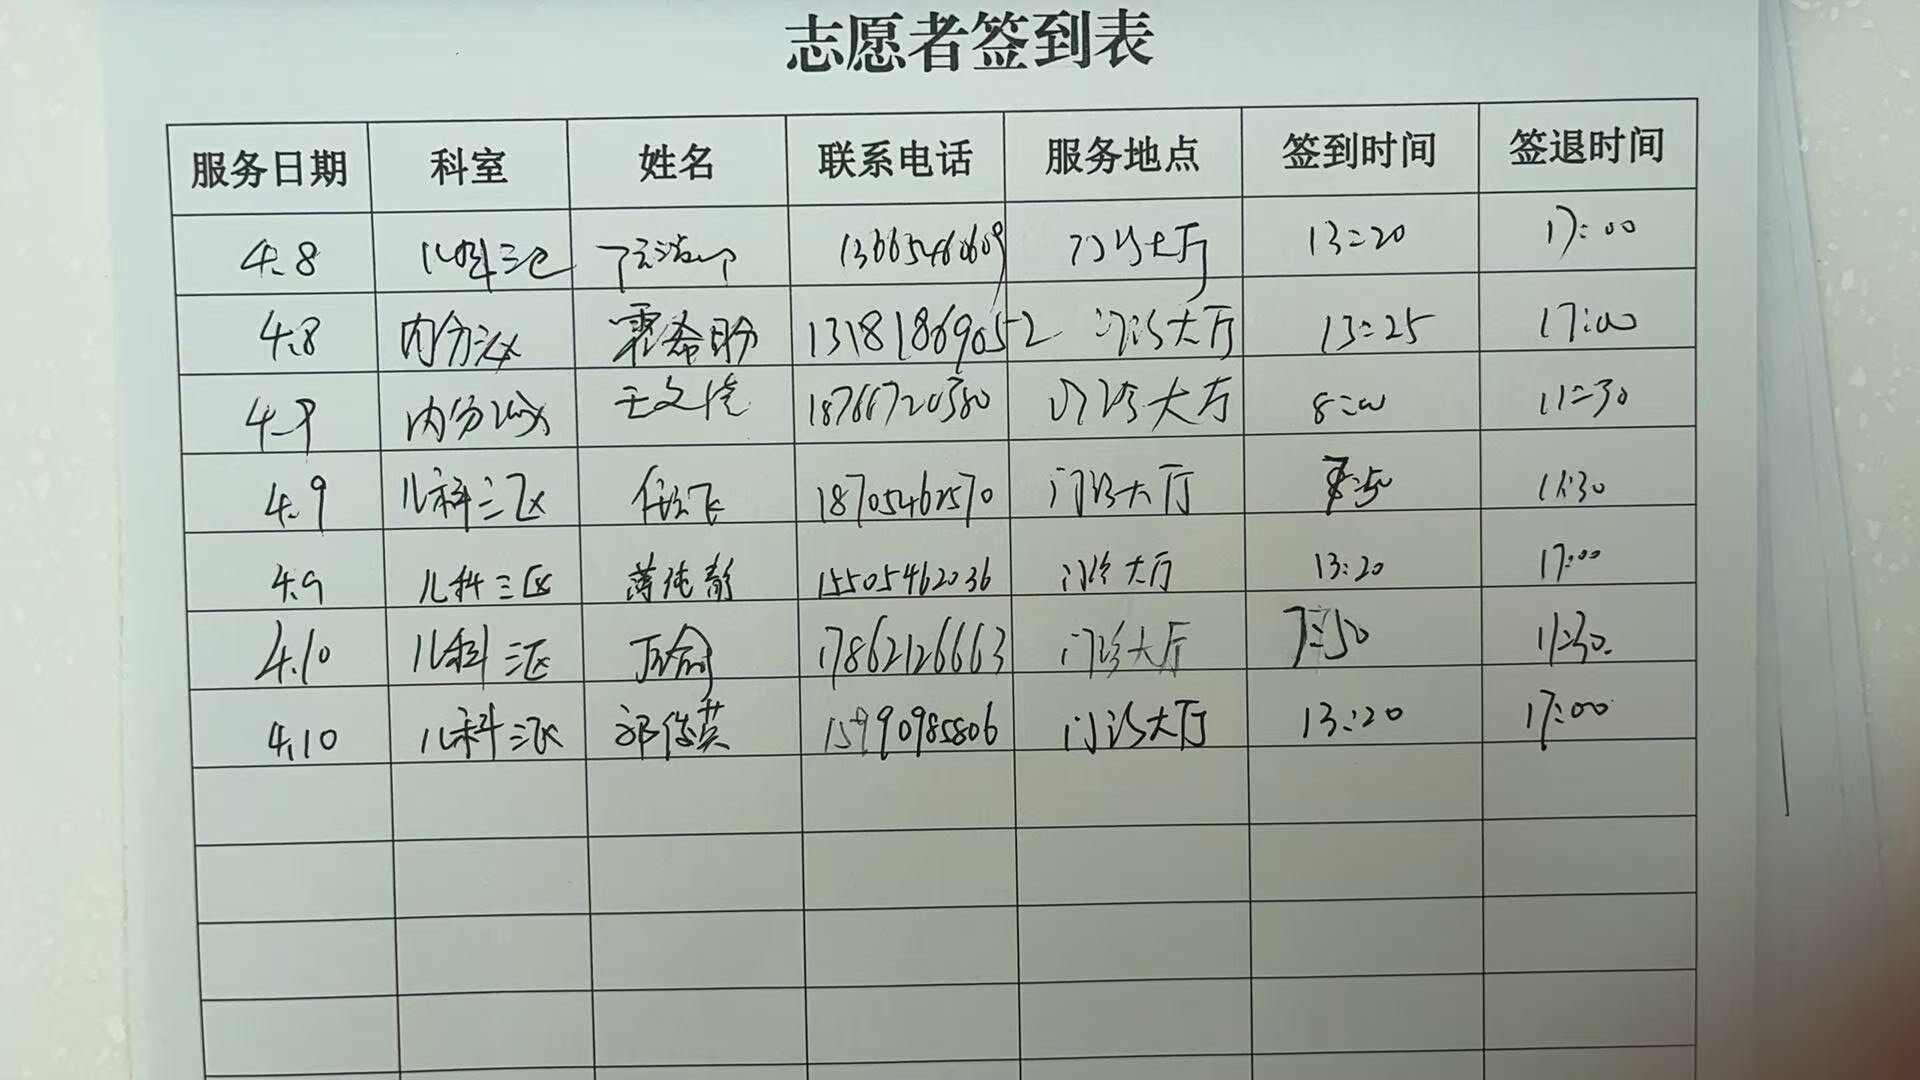 志愿者签到表
服务日期 科室 姓名 联系电话 服务地点 签到时间 签退时间
4.8 儿科三区 13665460609 门诊大厅 13:20 17:00
4.8 内分泌 霍希盼 13181869052 门诊大厅 13:25 17:00
4.9 内分泌 王文倩 18766720380 门诊大厅 8:00 11:30
4.9 儿科三区 18705462570 门诊大厅 7:50 11:30
4.9 儿科三区 薄纯静 15505462036 门诊大厅 13:20 17:00
4.10 儿科三区 17862126663 门诊大厅 7:50 11:30.
4.10 儿科三区 郭俊英 15990985806 门诊大厅 13:20 17:00